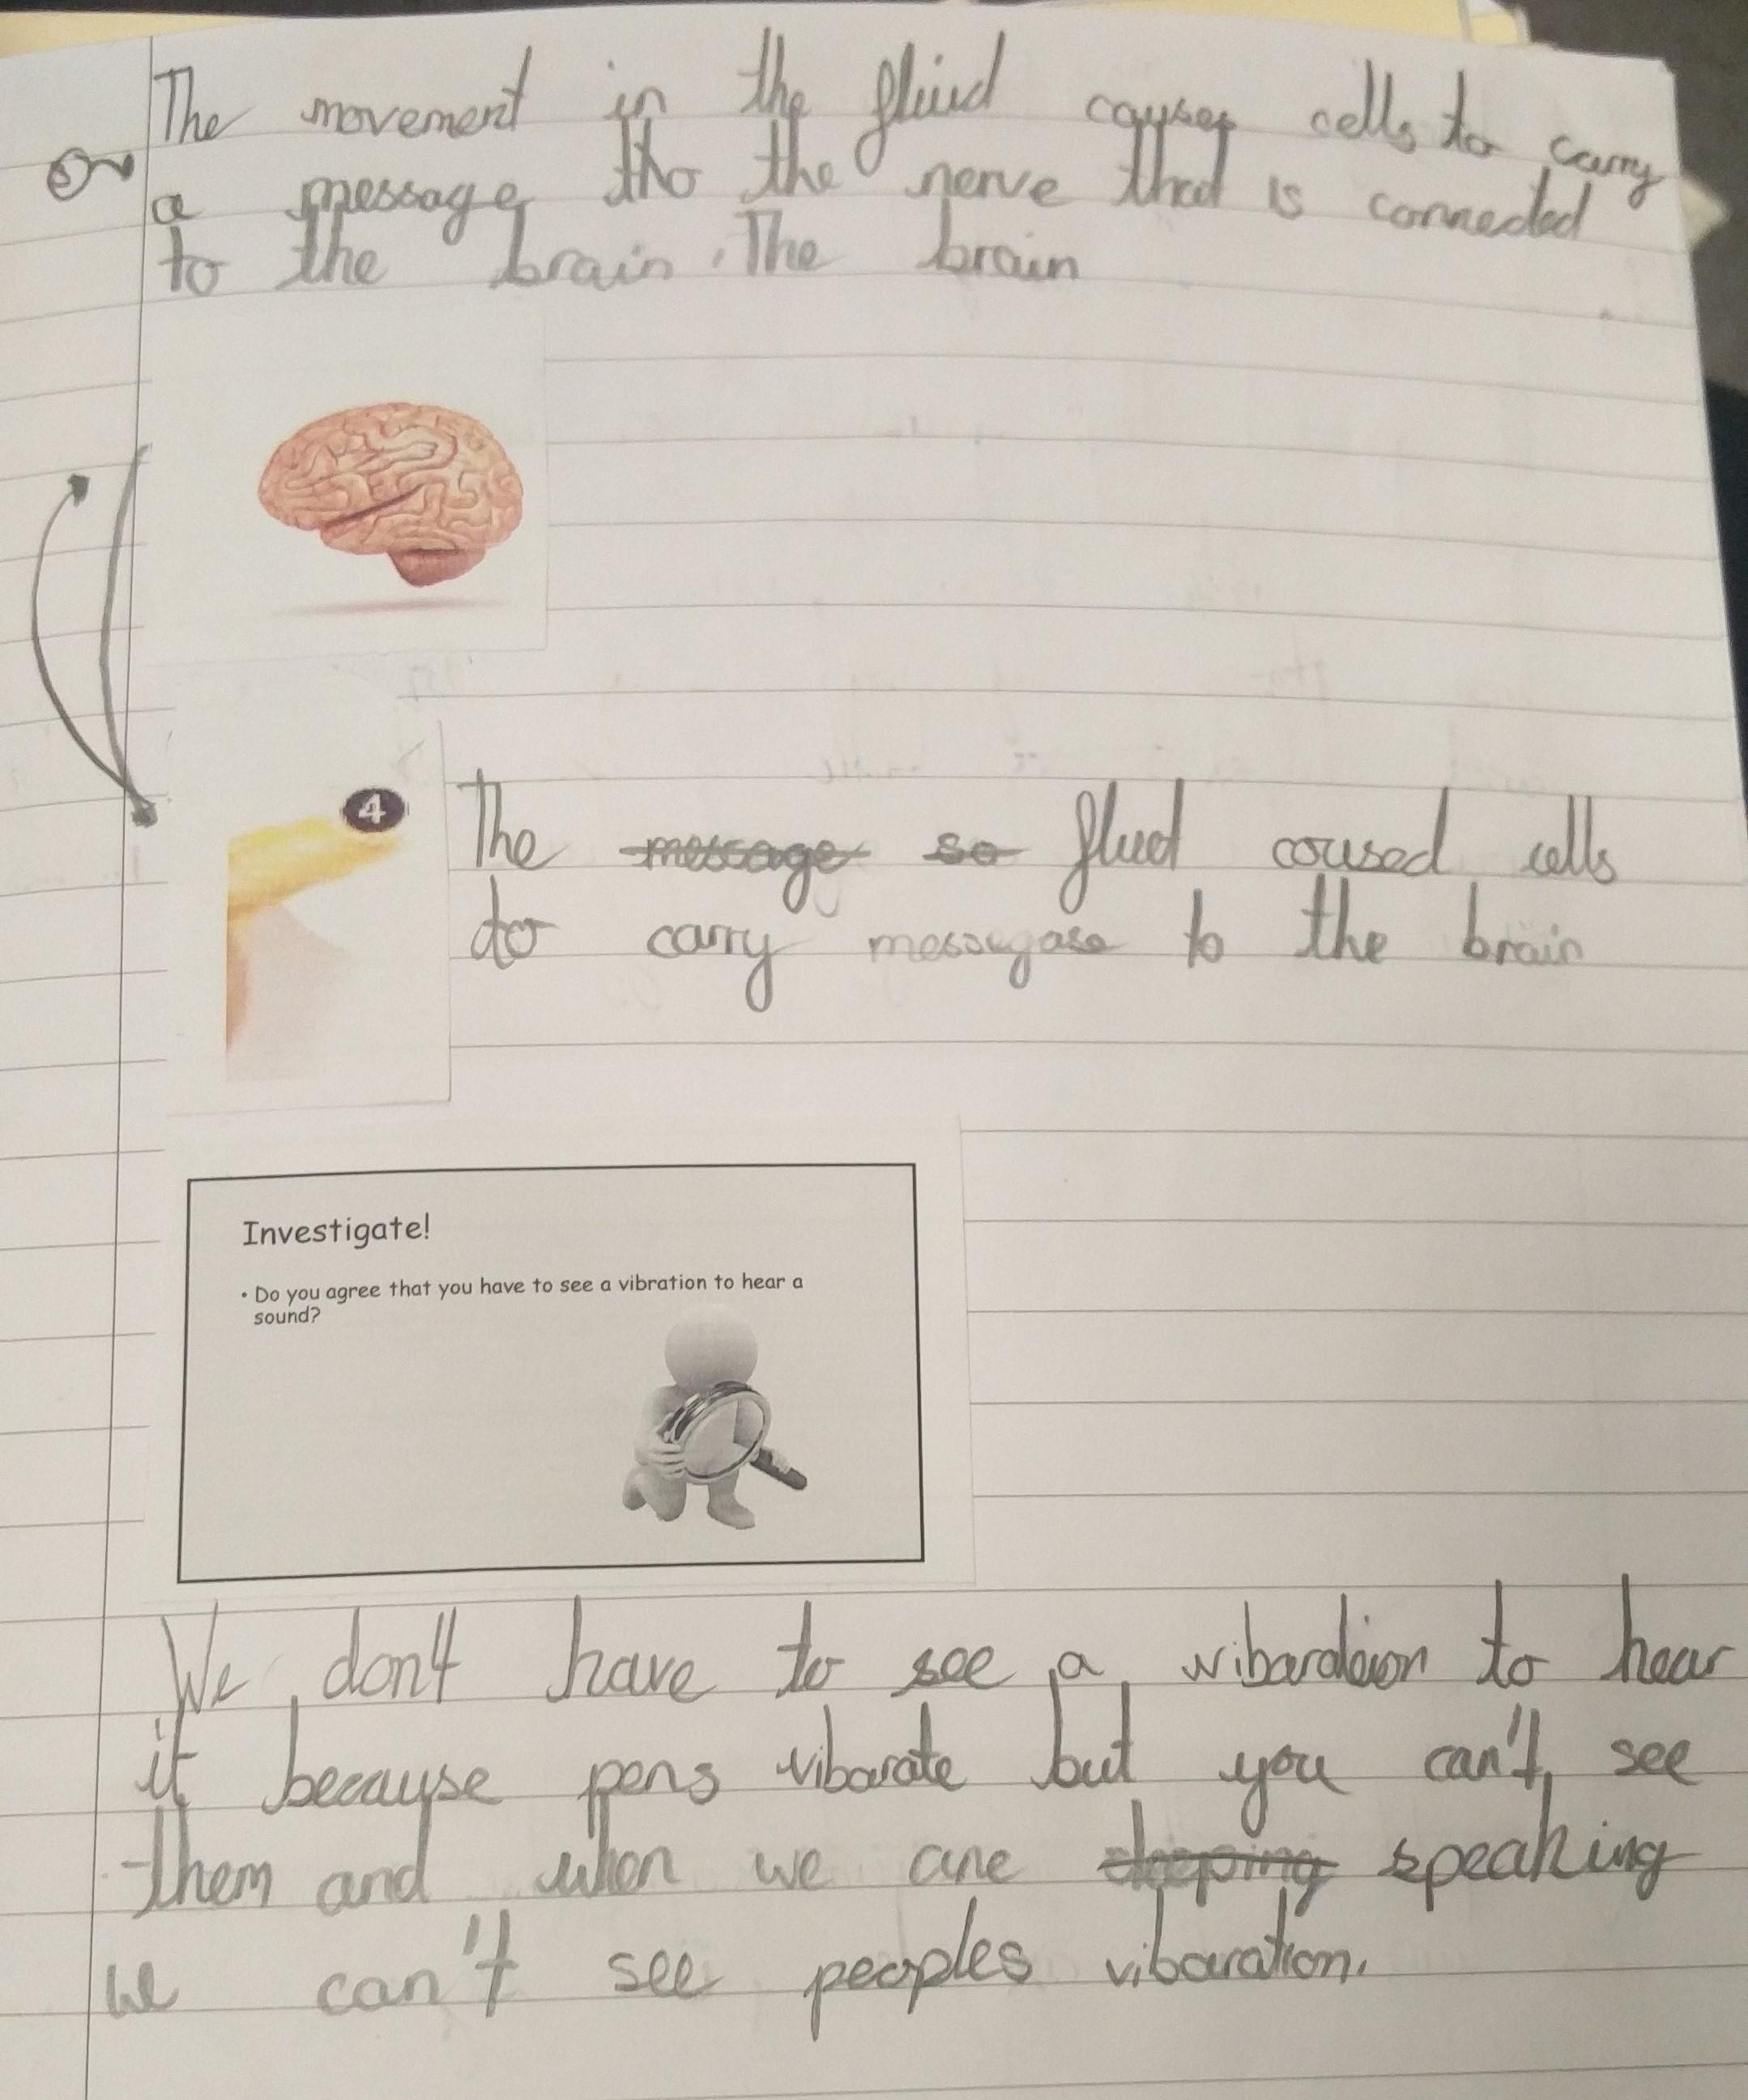 The movement in the fluid causes cells to carry
a message tho the nerve that is connected
to the brain. The brain
4
The message so flued coused cells
to carry messegase to the brain
Investigate!
• Do you agree that you have to see a vibration to hear a
sound?
We don't have to see a vibaration to hear
it because pens vibarate but you can't see
them and when we are sleeping speaking
we can't see peoples vibaration.